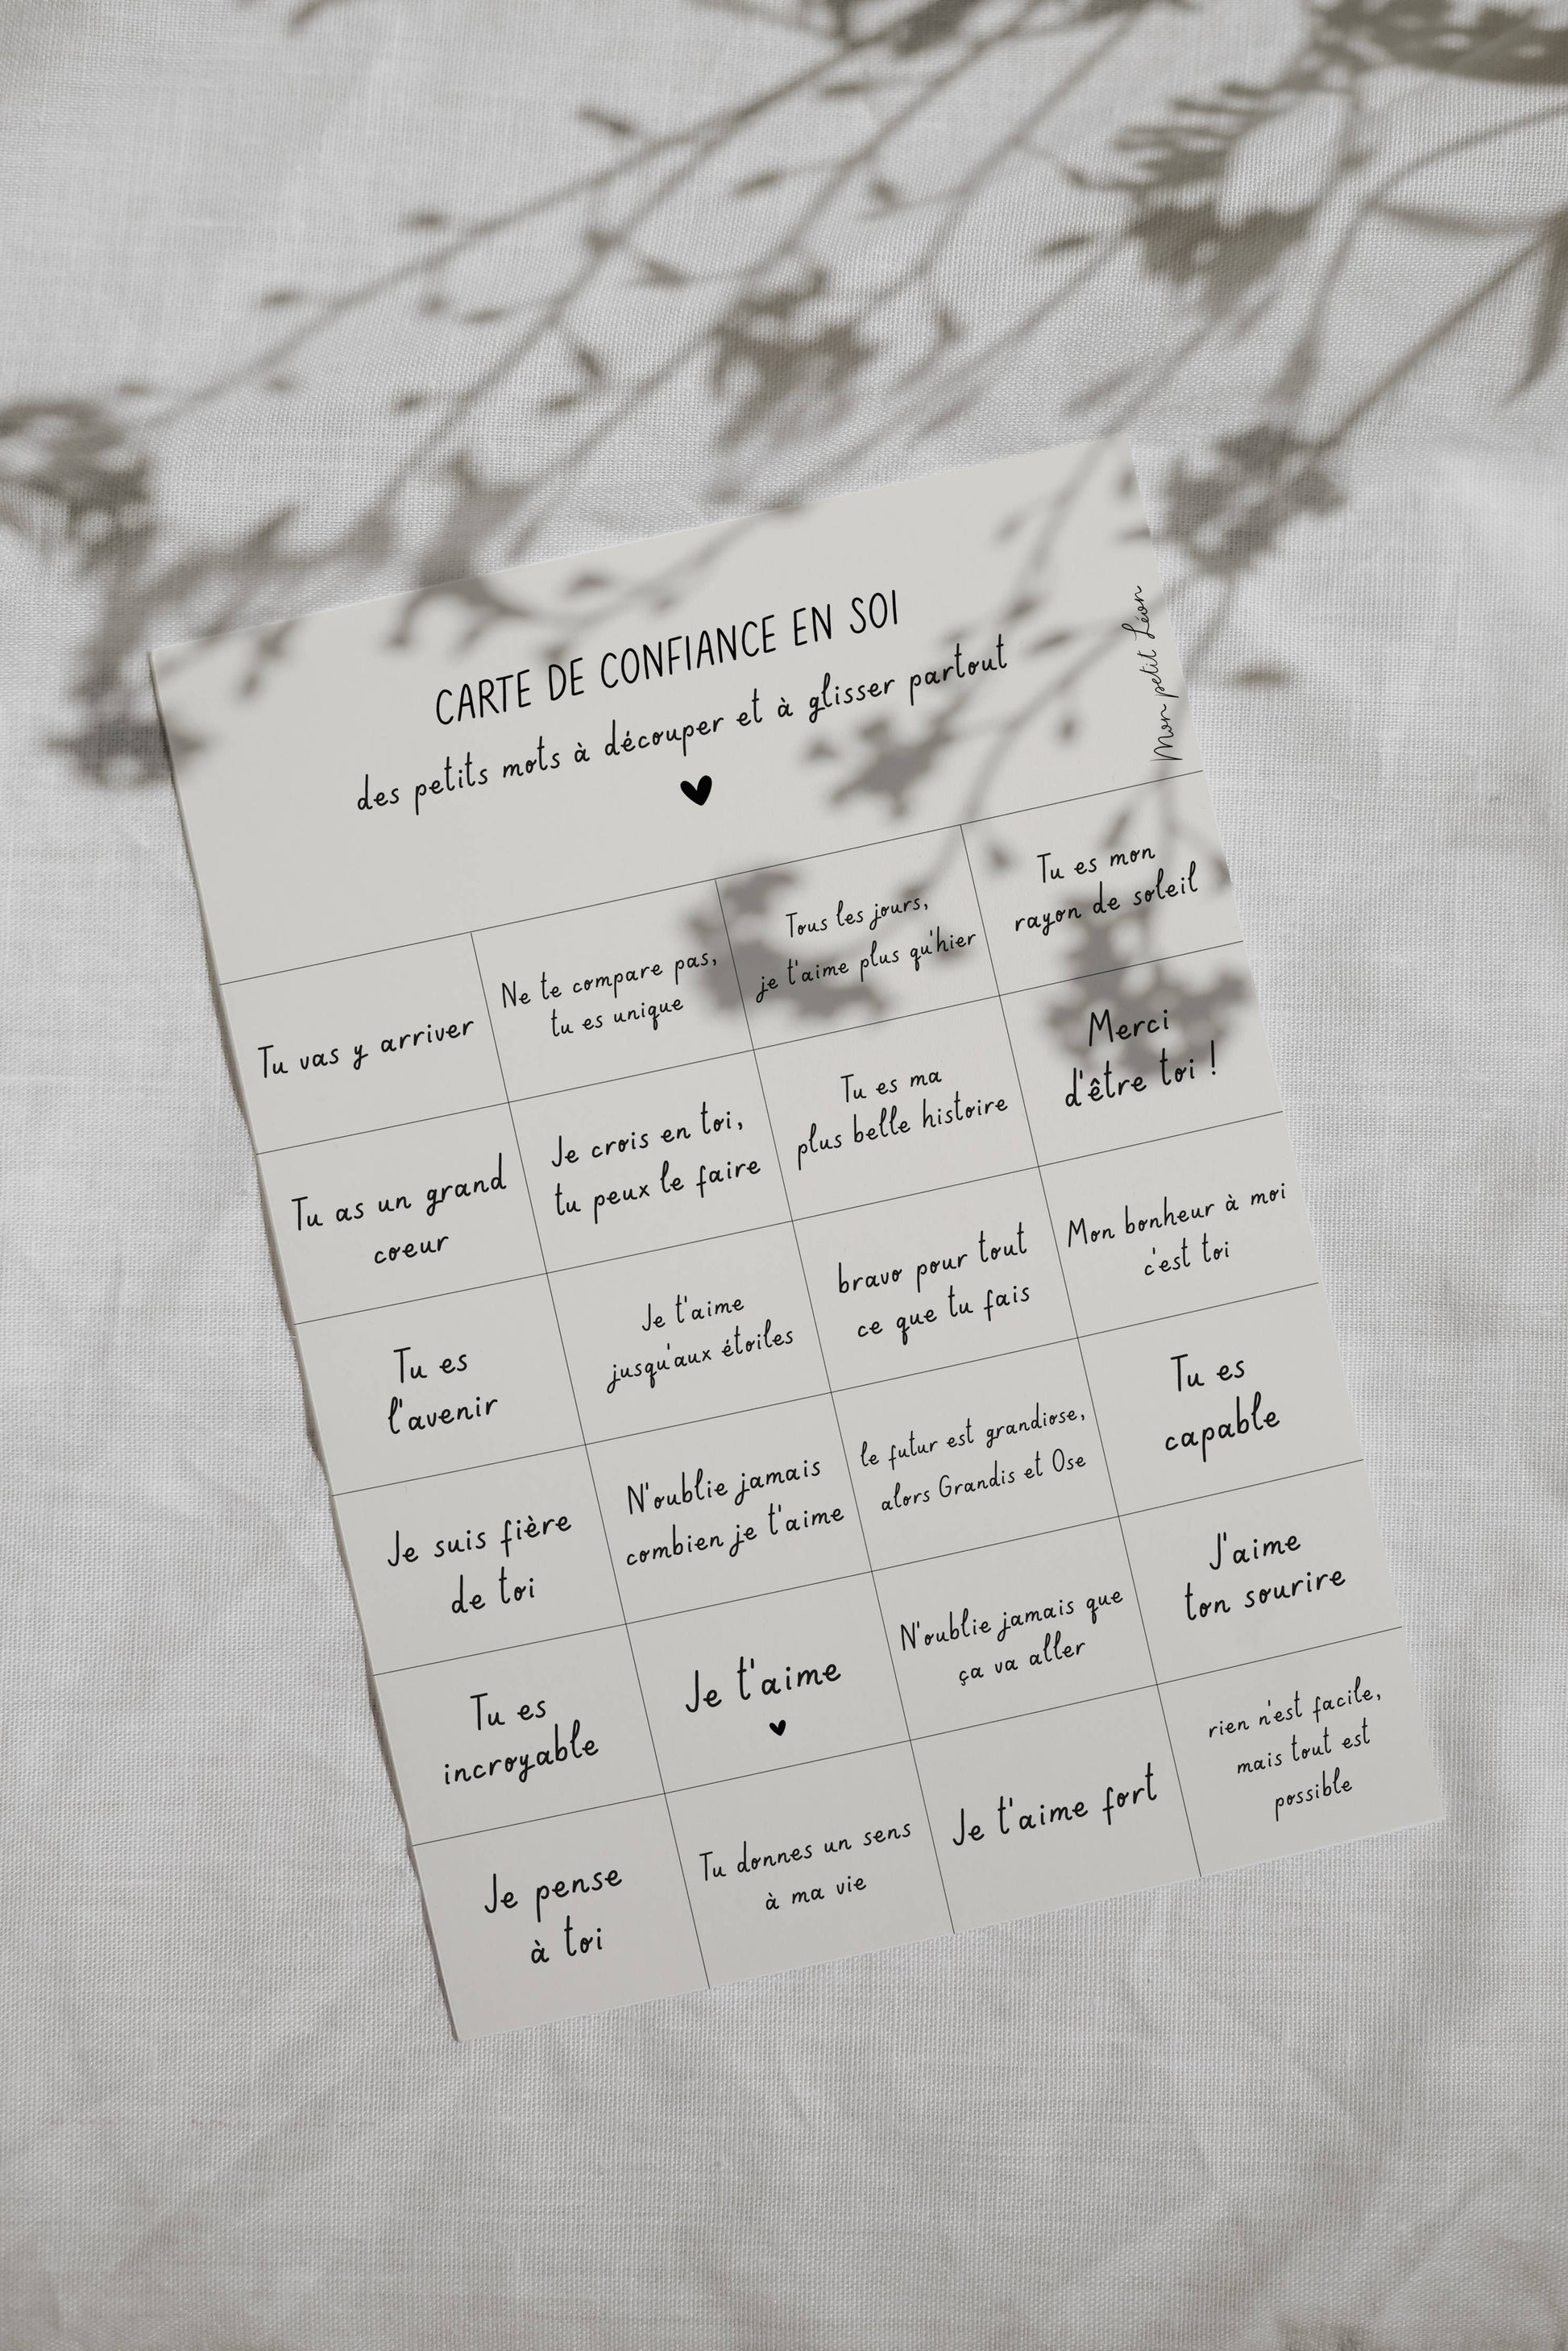 CARTE DE CONFIANCE EN SOI
des petits mots à découper et à glisser partout
Mon petit Léon
Tu vas y arriver
Ne te compare pas,
tu es unique
Tous les jours,
je t'aime plus qu'hier
Tu es mon
rayon de soleil
Tu as un grand
coeur
Je crois en toi,
tu peux le faire
Tu es ma
plus belle histoire
Merci
d'être toi !
Tu es
l'avenir
Je t'aime
jusqu'aux étoiles
bravo pour tout
ce que tu fais
Mon bonheur à moi
c'est toi
Je suis fière
de toi
N'oublie jamais
combien je t'aime
le futur est grandiose,
alors Grandis et Ose
Tu es
capable
Tu es
incroyable
Je t'aime
N'oublie jamais que
ça va aller
J'aime
ton sourire
Je pense
à toi
Tu donnes un sens
à ma vie
Je t'aime fort
rien n'est facile,
mais tout est
possible